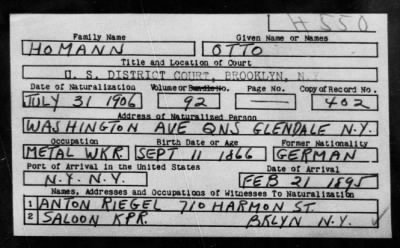 H 550
Family Name Given Name or Names
HOMANN OTTO
Title and Location of Court
U. S. DISTRICT COURT, BROOKLYN, N.Y.
Date of Naturalization Volume or Bundle No. Page No. Copy of Record No.
JULY 31 1906 92 402
Address of Naturalized Person
WASHINGTON AVE QNS GLENDALE N.Y.
Occupation Birth Date or Age Former Nationality
METAL WKR. SEPT 11 1866 GERMAN
Port of Arrival in the United States Date of Arrival
N.Y. N.Y. FEB 21 1895
Names, Addresses and Occupations of Witnesses To Naturalization
1 ANTON RIEGEL 710 HARMON ST.
2 SALOON KPR. BKLYN N.Y.